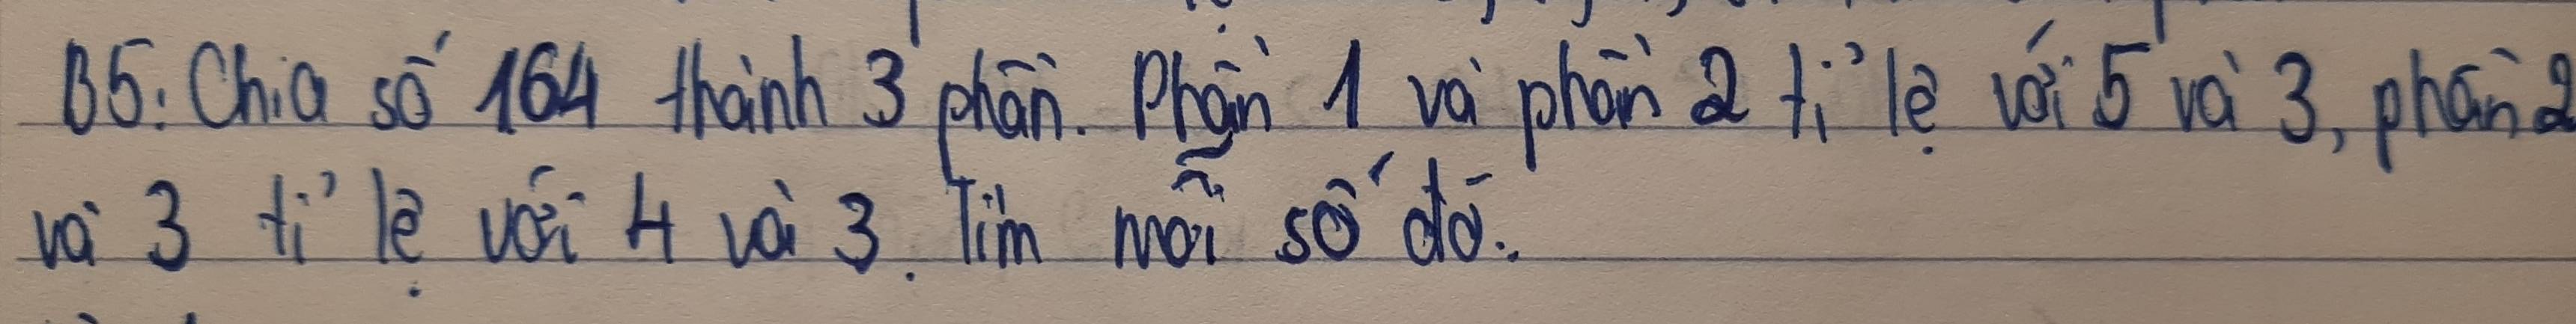 B5: Chia số 164 thành 3 phần. Phần 1 và phần 2 tỉ lệ với 5 và 3, phần 2
và 3 tỉ lệ với 4 và 3. Tìm mỗi số đó.